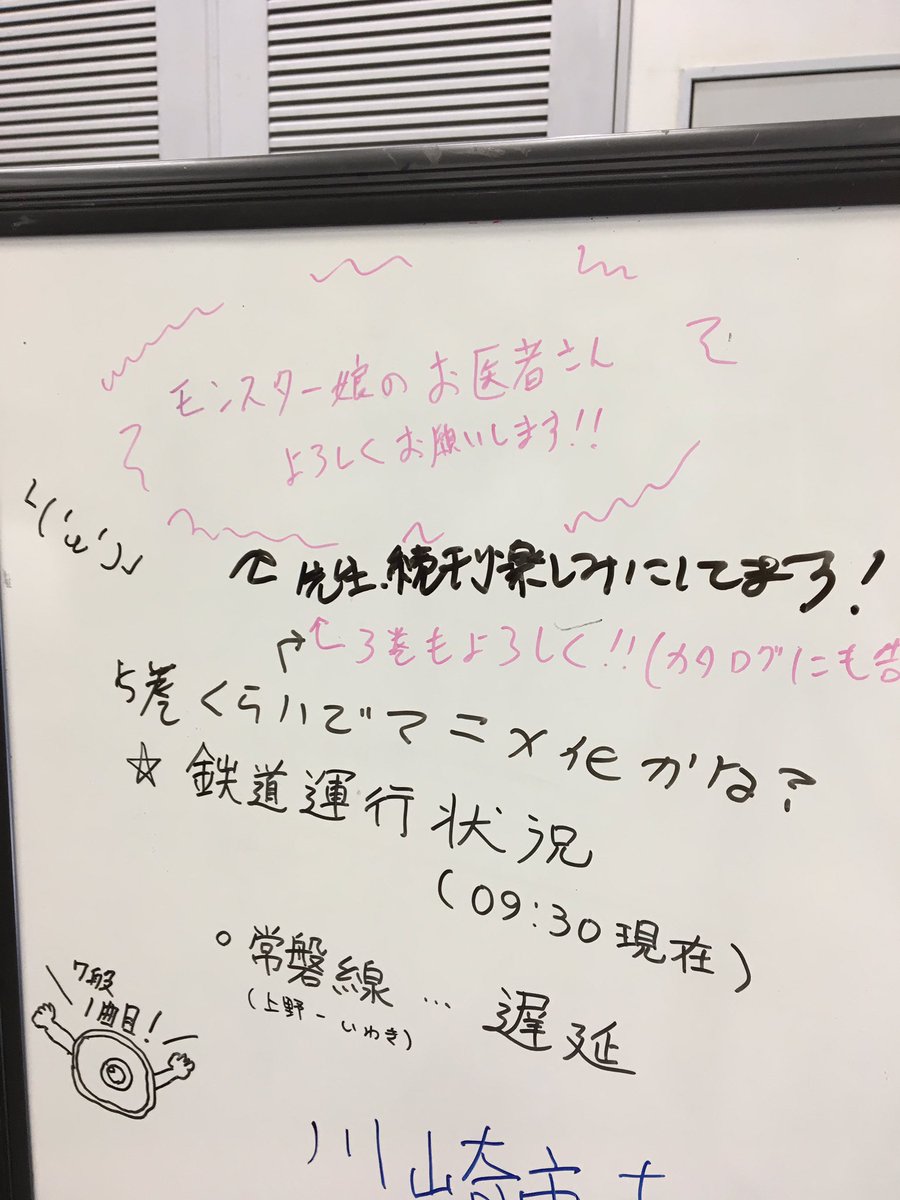 モンスター娘のお医者さん
よろしくお願いします!!
└('ω')┘
↑先生、続刊楽しみにしてまろ!
↑3巻もよろしく!!(カタログにも告
5巻くらいでアニメ化かな?
☆鉄道運行状況
(09:30現在)
○常磐線…遅延
(上野-いわき)
1曲目!
川崎市